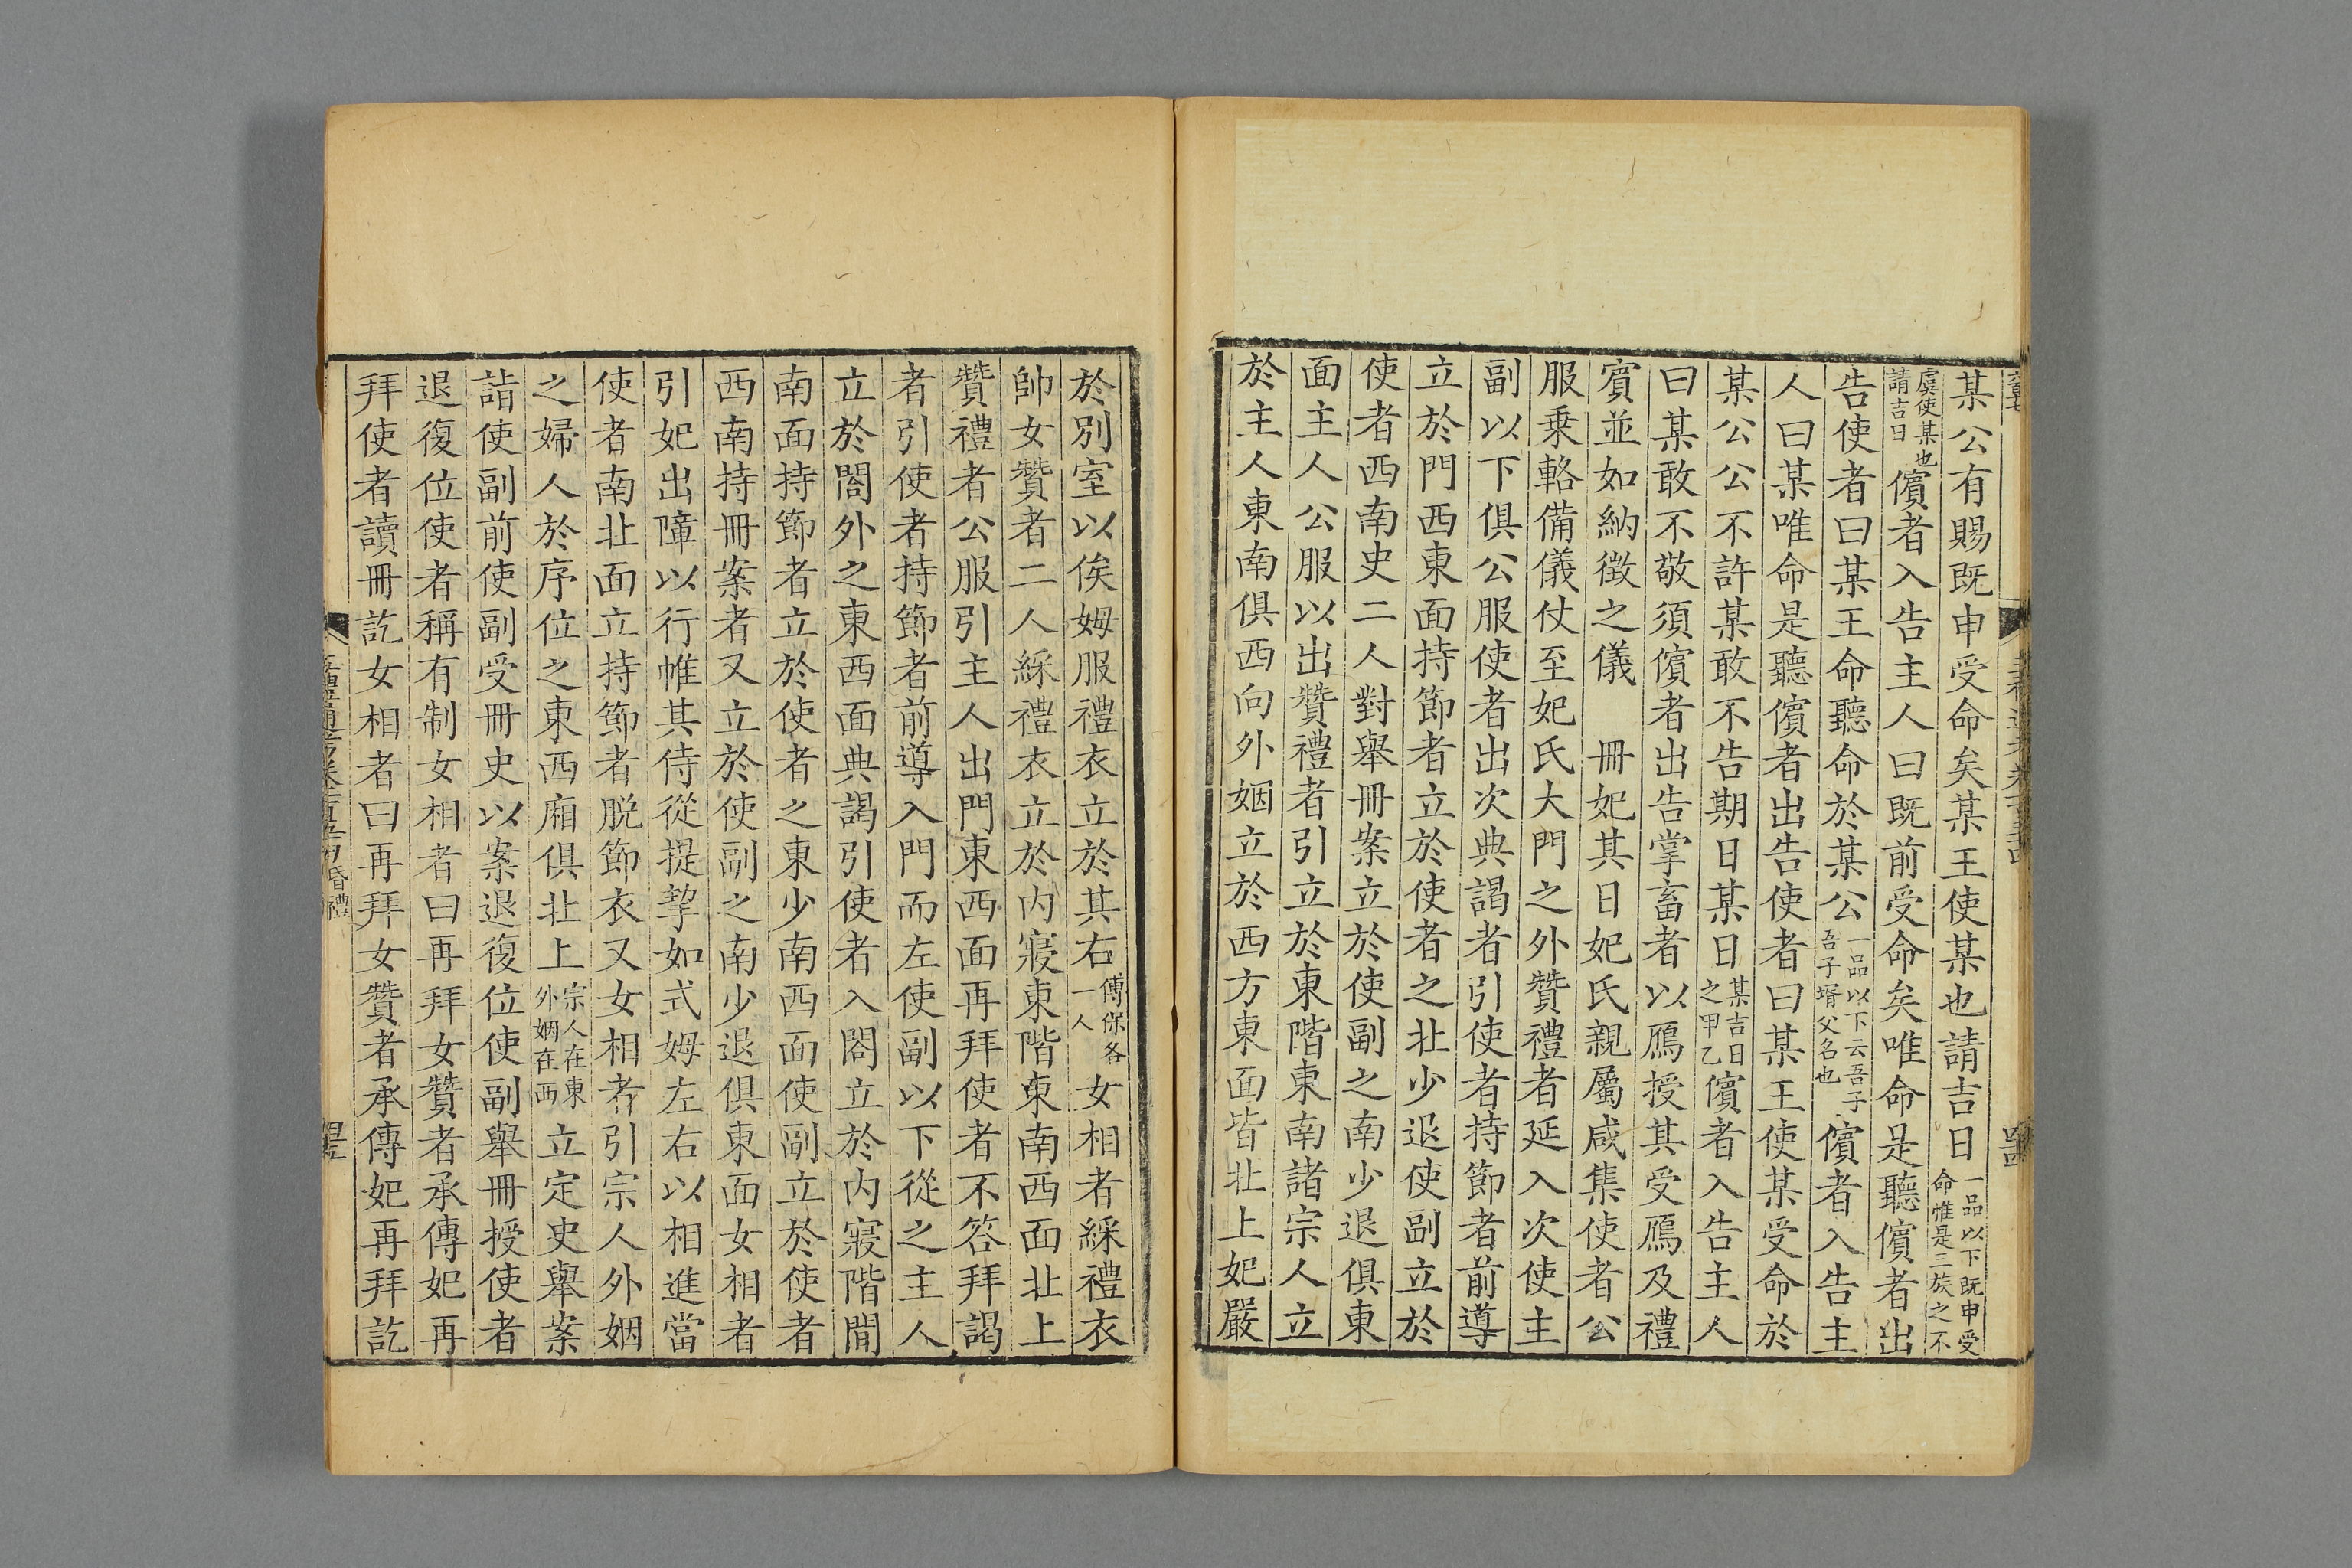 某公有賜既申受命矣某王使某也請吉日一品以下既申受命惟是三族之不
虞使某也請吉日儐者入告主人曰既前受命矣唯命是聽儐者出
告使者曰某王命聽命於某公一品以下云吾子吾子壻父名也儐者入告主
人曰某唯命是聽儐者出告使者曰某王使某受命於
某公公不許某敢不告期日某日某吉日之甲乙儐者入告主人
曰某敢不敬須儐者出告掌畜者以鴈授其受鴈及禮
賓並如納徵之儀 冊妃其日妃氏親屬咸集使者公
服乗輅備儀仗至妃氏大門之外贊禮者延入次使主
副以下俱公服使者出次典謁者引使者持節者前導
立於門西東面持節者立於使者之北少退使副立於
使者西南史二人對舉冊案立於使副之南少退俱東
面主人公服以出贊禮者引立於東階東南諸宗人立
於主人東南俱西向外姻立於西方東面皆北上妃嚴
於別室以俟姆服禮衣立於其右傅保各一人女相者綵禮衣
帥女贊者二人綵禮衣立於内寢東階東南西面北上
贊禮者公服引主人出門東西面再拜使者不答拜謁
者引使者持節者前導入門而左使副以下從之主人
立於閤外之東西面典謁引使者入閤立於内寢階間
南面持節者立於使者之東少南西面使副立於使者
西南持冊案者又立於使副之南少退俱東面女相者
引妃出障以行帷其侍從提挈如式姆左右以相進當
使者南北面立持節者脱節衣又女相者引宗人外姻
之婦人於序位之東西廂俱北上宗人在東外姻在西立定史舉案
詣使副前使副受冊史以案退復位使副舉冊授使者
退復位使者稱有制女相者曰再拜女贊者承傳妃再
拜使者讀冊訖女相者曰再拜女贊者承傳妃再拜訖
昏禮